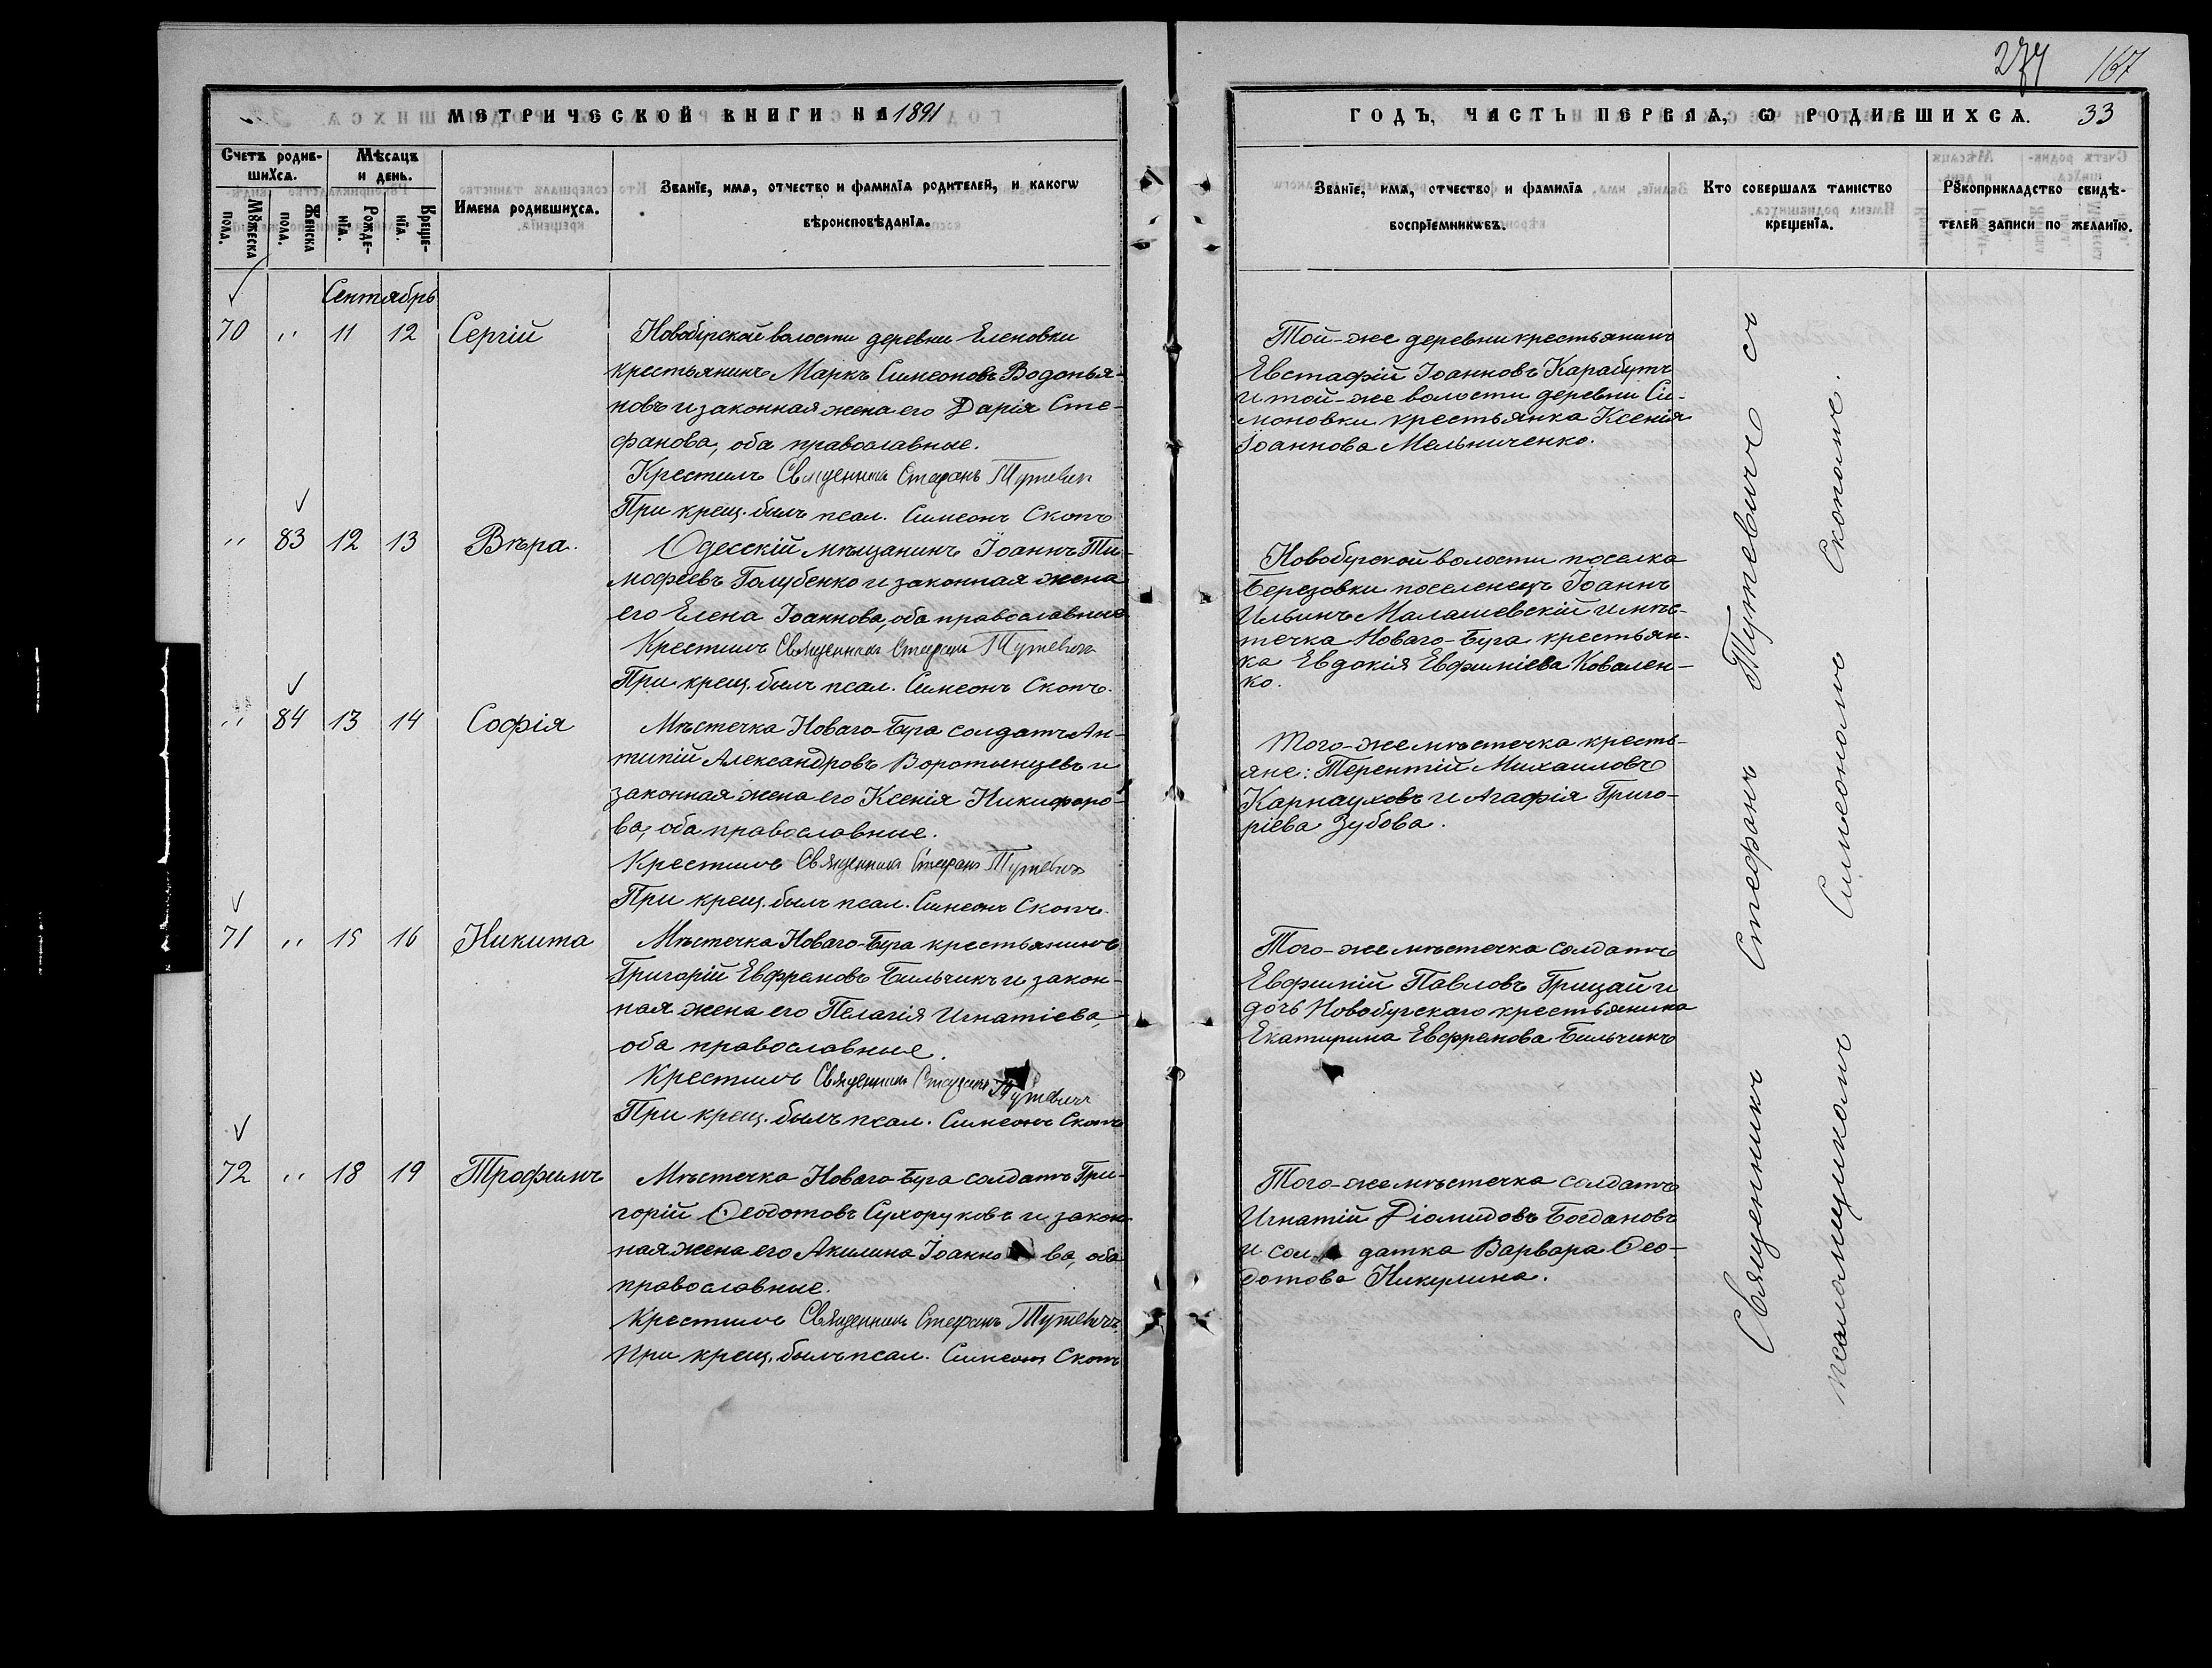 274 167
МЕТРИЧЕСКОЙ КНИГИ НА 1891
ГОДЪ, ЧАСТЬ ПЕРВАЯ, Ѡ РОДИВШИХСѦ. 33
Счетъ родив-
шихсѧ.
Мѣсѧцъ
и день.
Мꙋжеска
пола.
Женска
пола.
Рожде-
нїѧ.
Креще-
нїѧ.
Имена родившихсѧ.
Званїе, имѧ, отчество и фамилїѧ родителей, и какогѡ
вѣроисповѣданїѧ.
Званїе, имѧ, отчество и фамилїѧ
воспрїемникѡвъ.
Кто совершалъ таинство
крещенїѧ.
Рꙋкоприкладство свидѣ-
телей записи по желанїю.
Сентябрь
70 " 11 12 Сергій
Новобугской волости деревни Еленовки
крестьянинъ Маркъ Симеоновъ Водопья-
новъ и законная жена его Дарія Сте-
фанова, оба православные.
Крестилъ Священникъ Стефанъ Тутевич
При крещ. былъ псал. Симеонъ Скопъ
Той-же деревни крестьянинъ
Евстафій Іоанновъ Карабутъ
и той-же волости деревни Си-
моновки крестьянка Ксенія
Іоаннова Мельниченко.
" 83 12 13 Вѣра.
Одесскій мѣщанинъ Іоаннъ Ти-
мофеевъ Голубенко и законная жена
его Елена Іоаннова, оба православные
Крестилъ Священникъ Стефанъ Тутевичъ
При крещ. былъ псал. Симеонъ Скопъ.
Новобугской волости поселка
Березовки поселенецъ Іоаннъ
Ильинъ Малашевскій и мѣс-
течка Новаго-Буга крестьян-
ка Евдокія Евфиміева Ковален-
ко.
" 84 13 14 Софія
Мѣстечка Новаго-Буга солдатъ Ан-
типій Александровъ Воротынцевъ и
законная жена его Ксенія Никифоро-
ва, оба православные.
Крестилъ Священникъ Стефанъ Тутевичъ
При крещ. былъ псал. Симеонъ Скопъ.
Того-же мѣстечка кресть-
яне: Терентій Михаиловъ
Карнауховъ и Агафія Григо-
ріева Зубова.
71 " 15 16 Никита
Мѣстечка Новаго-Буга крестьянинъ
Григорій Евфремовъ Бильчикъ и закон-
ная жена его Пелагія Игнатіева,
оба православные.
Крестилъ Священникъ Стефанъ Тутевичъ
При крещ. былъ псал. Симеонъ Скопъ
Того-же мѣстечка солдатъ
Евфимій Павловъ Грицай и
дочь Новобугскаго крестьянина
Екатирина Евфремова Бильчикъ
72 " 18 19 Трофимъ
Мѣстечка Новаго-Буга солдатъ Гри-
горій Ѳеодотовъ Сухоруковъ и закон-
ная жена его Акилина Іоанно ва, оба
православные.
Крестилъ Священникъ Стефанъ Тутевичъ.
При крещ. былъ псал. Симеонъ Скопъ
Того-же мѣстечка солдатъ
Игнатій Діомидовъ Богдановъ
и сол датка Варвара Ѳео-
дотова Никулина.
Священникъ Стефанъ Тутевичъ съ
псаломщикомъ Симеономъ Скопомъ.